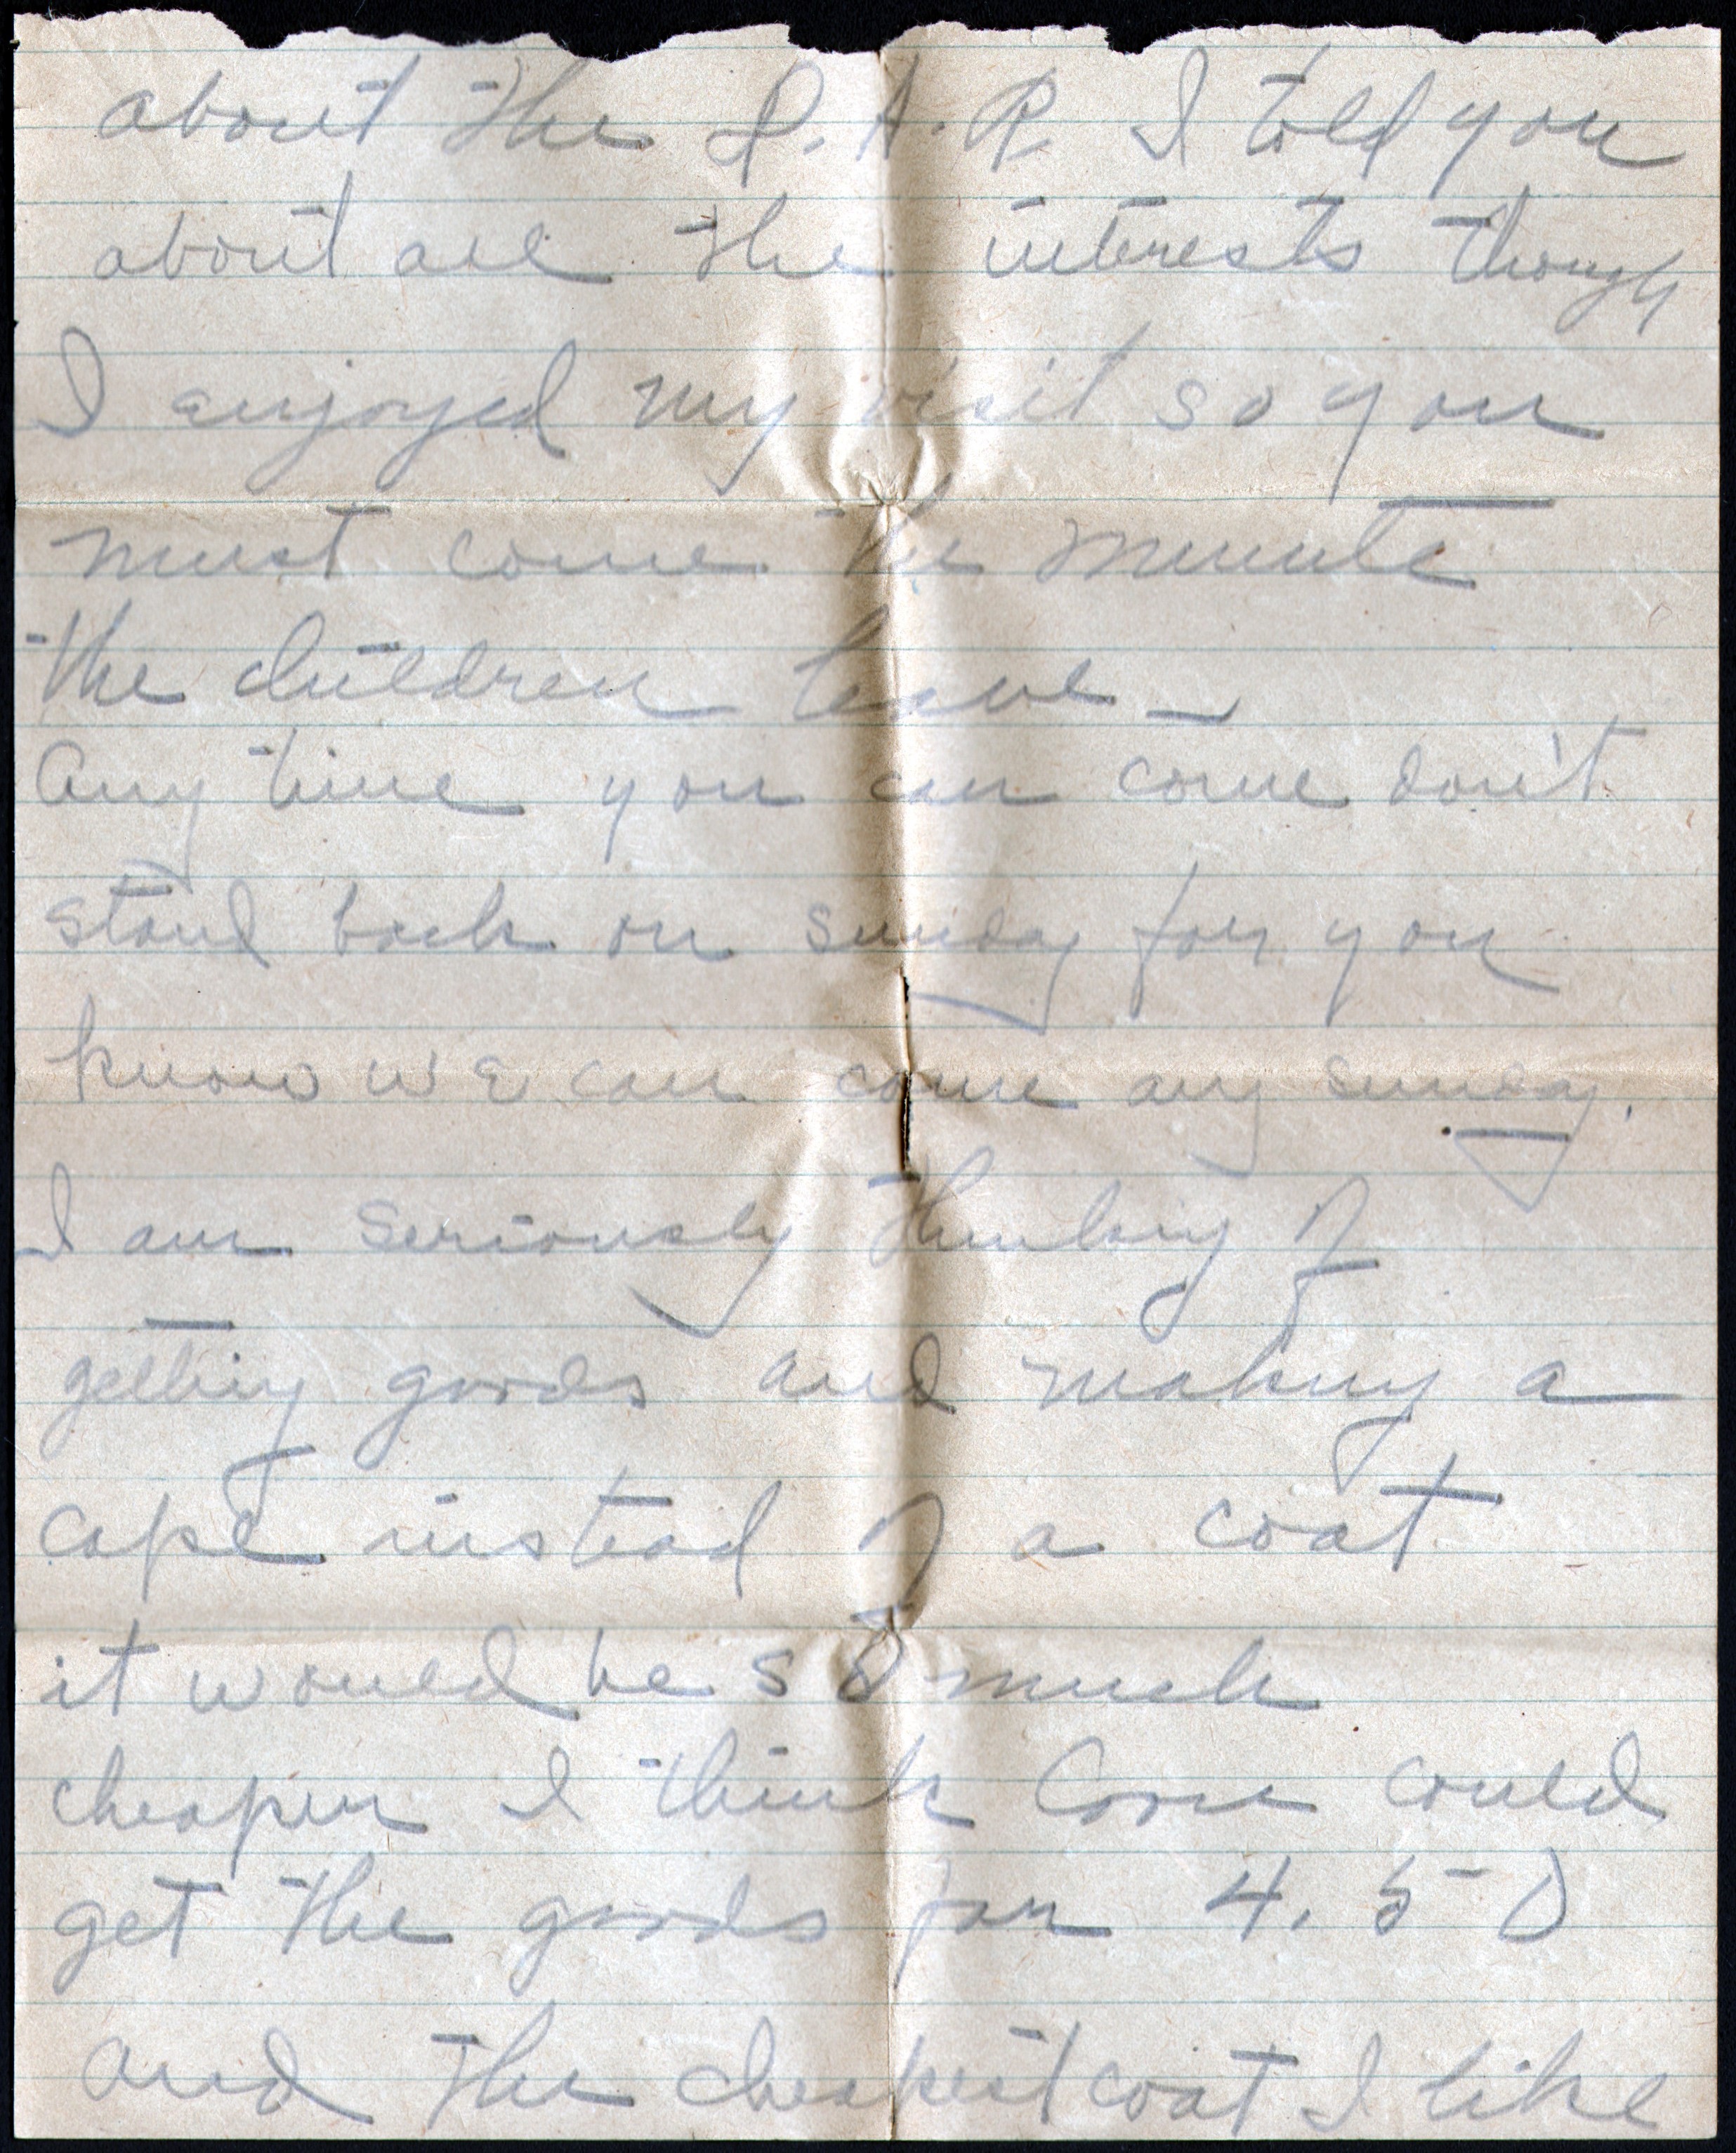 about the D.A.R. I told you
about all the interests though
I enjoyed my visit so you
must come the minute
the children leave _
Any time you can come don't
stand back on Sunday for you
know we can come any Sunday.
I am seriously thinking of
getting goods and making a
cape instead of a coat
it would be so much
cheaper I think could
get the goods for 4.50
and the cheapest coat I like